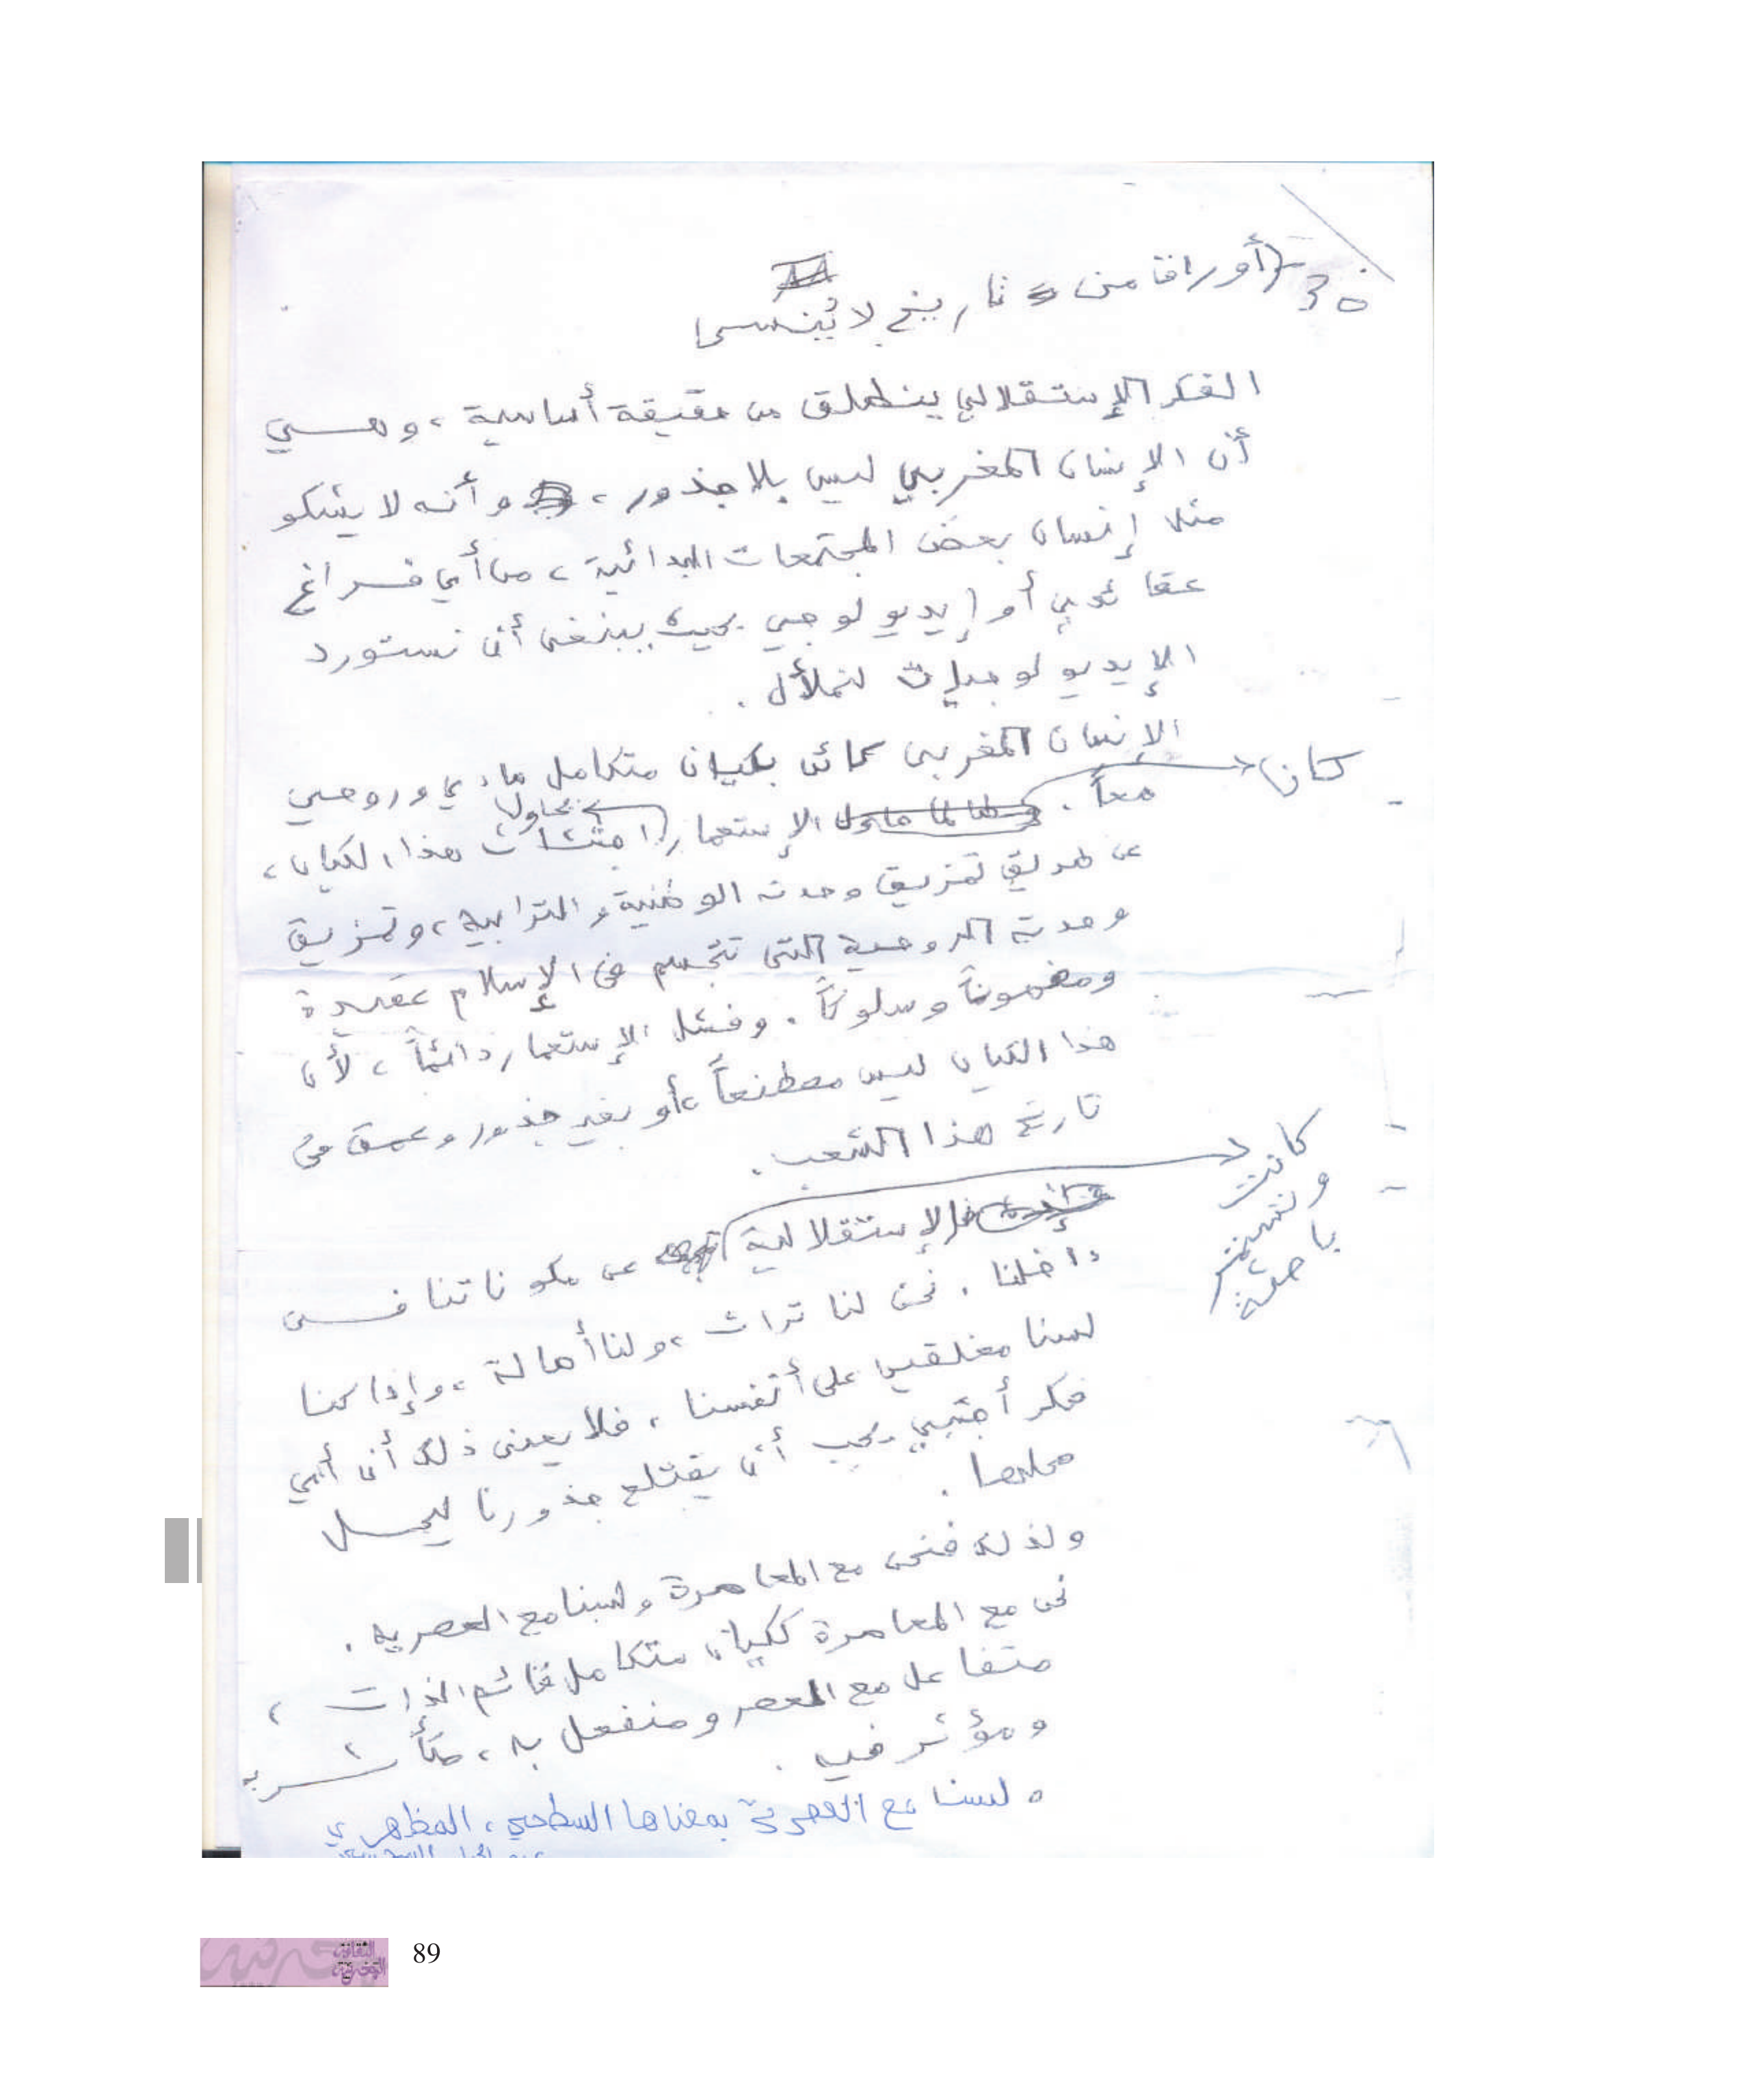 30-) أوراق من تاريخ لا يُنسى
الفكر الإستقلالي ينطلق من حقيقة أساسية ، وهي
أن الإنسان المغربي ليس بلا جذور ، وأنه لا يشكو
مثلا إنسان بعض المجتمعات البدائية ، من أي فراغ
عقائدي أو إيديولوجي بحيث ينبغي أن نستورد
الإيديولوجيات لنملأه .
الإنسان المغربي كائن بكيان متكامل مادي وروحي
معاً . كان الإستعمار يحاول اجتثاث هذا الكيان ،
عن طريق تمزيق وحدته الوطنية والترابية ، وتمزيق
وحدته الروحية التي تتجسم في الإسلام عقيدة
ومضموناً وسلوكاً . وفشل الإستعمار دائماً ، لأن
هذا الكيان ليس مصطنعاً ، أو بغير جذور وعمق في
تاريخ هذا الشعب .
فالإستقلالية كانت وستستمر باحثة عن مكوناتنا في
داخلنا . نحن لنا تراث ، ولنا أصالة ، وإذا كنا
لسنا مغلقين على أنفسنا ، فلا يعني ذلك أن أي
فكر أجنبي يجب أن يقتلع جذورنا ليحل
محلها .
ولذلك فنحن مع المعاصرة ولسنا مع العصرية .
نحن مع المعاصرة ككيان متكامل قائم الذات ،
متفاعل مع العصر ومنفعل به ، متأثر به
ومؤثر فيه .
ولسنا مع العصرية بمعناها السطحي ، المظهري
الثقافة المغربية
89